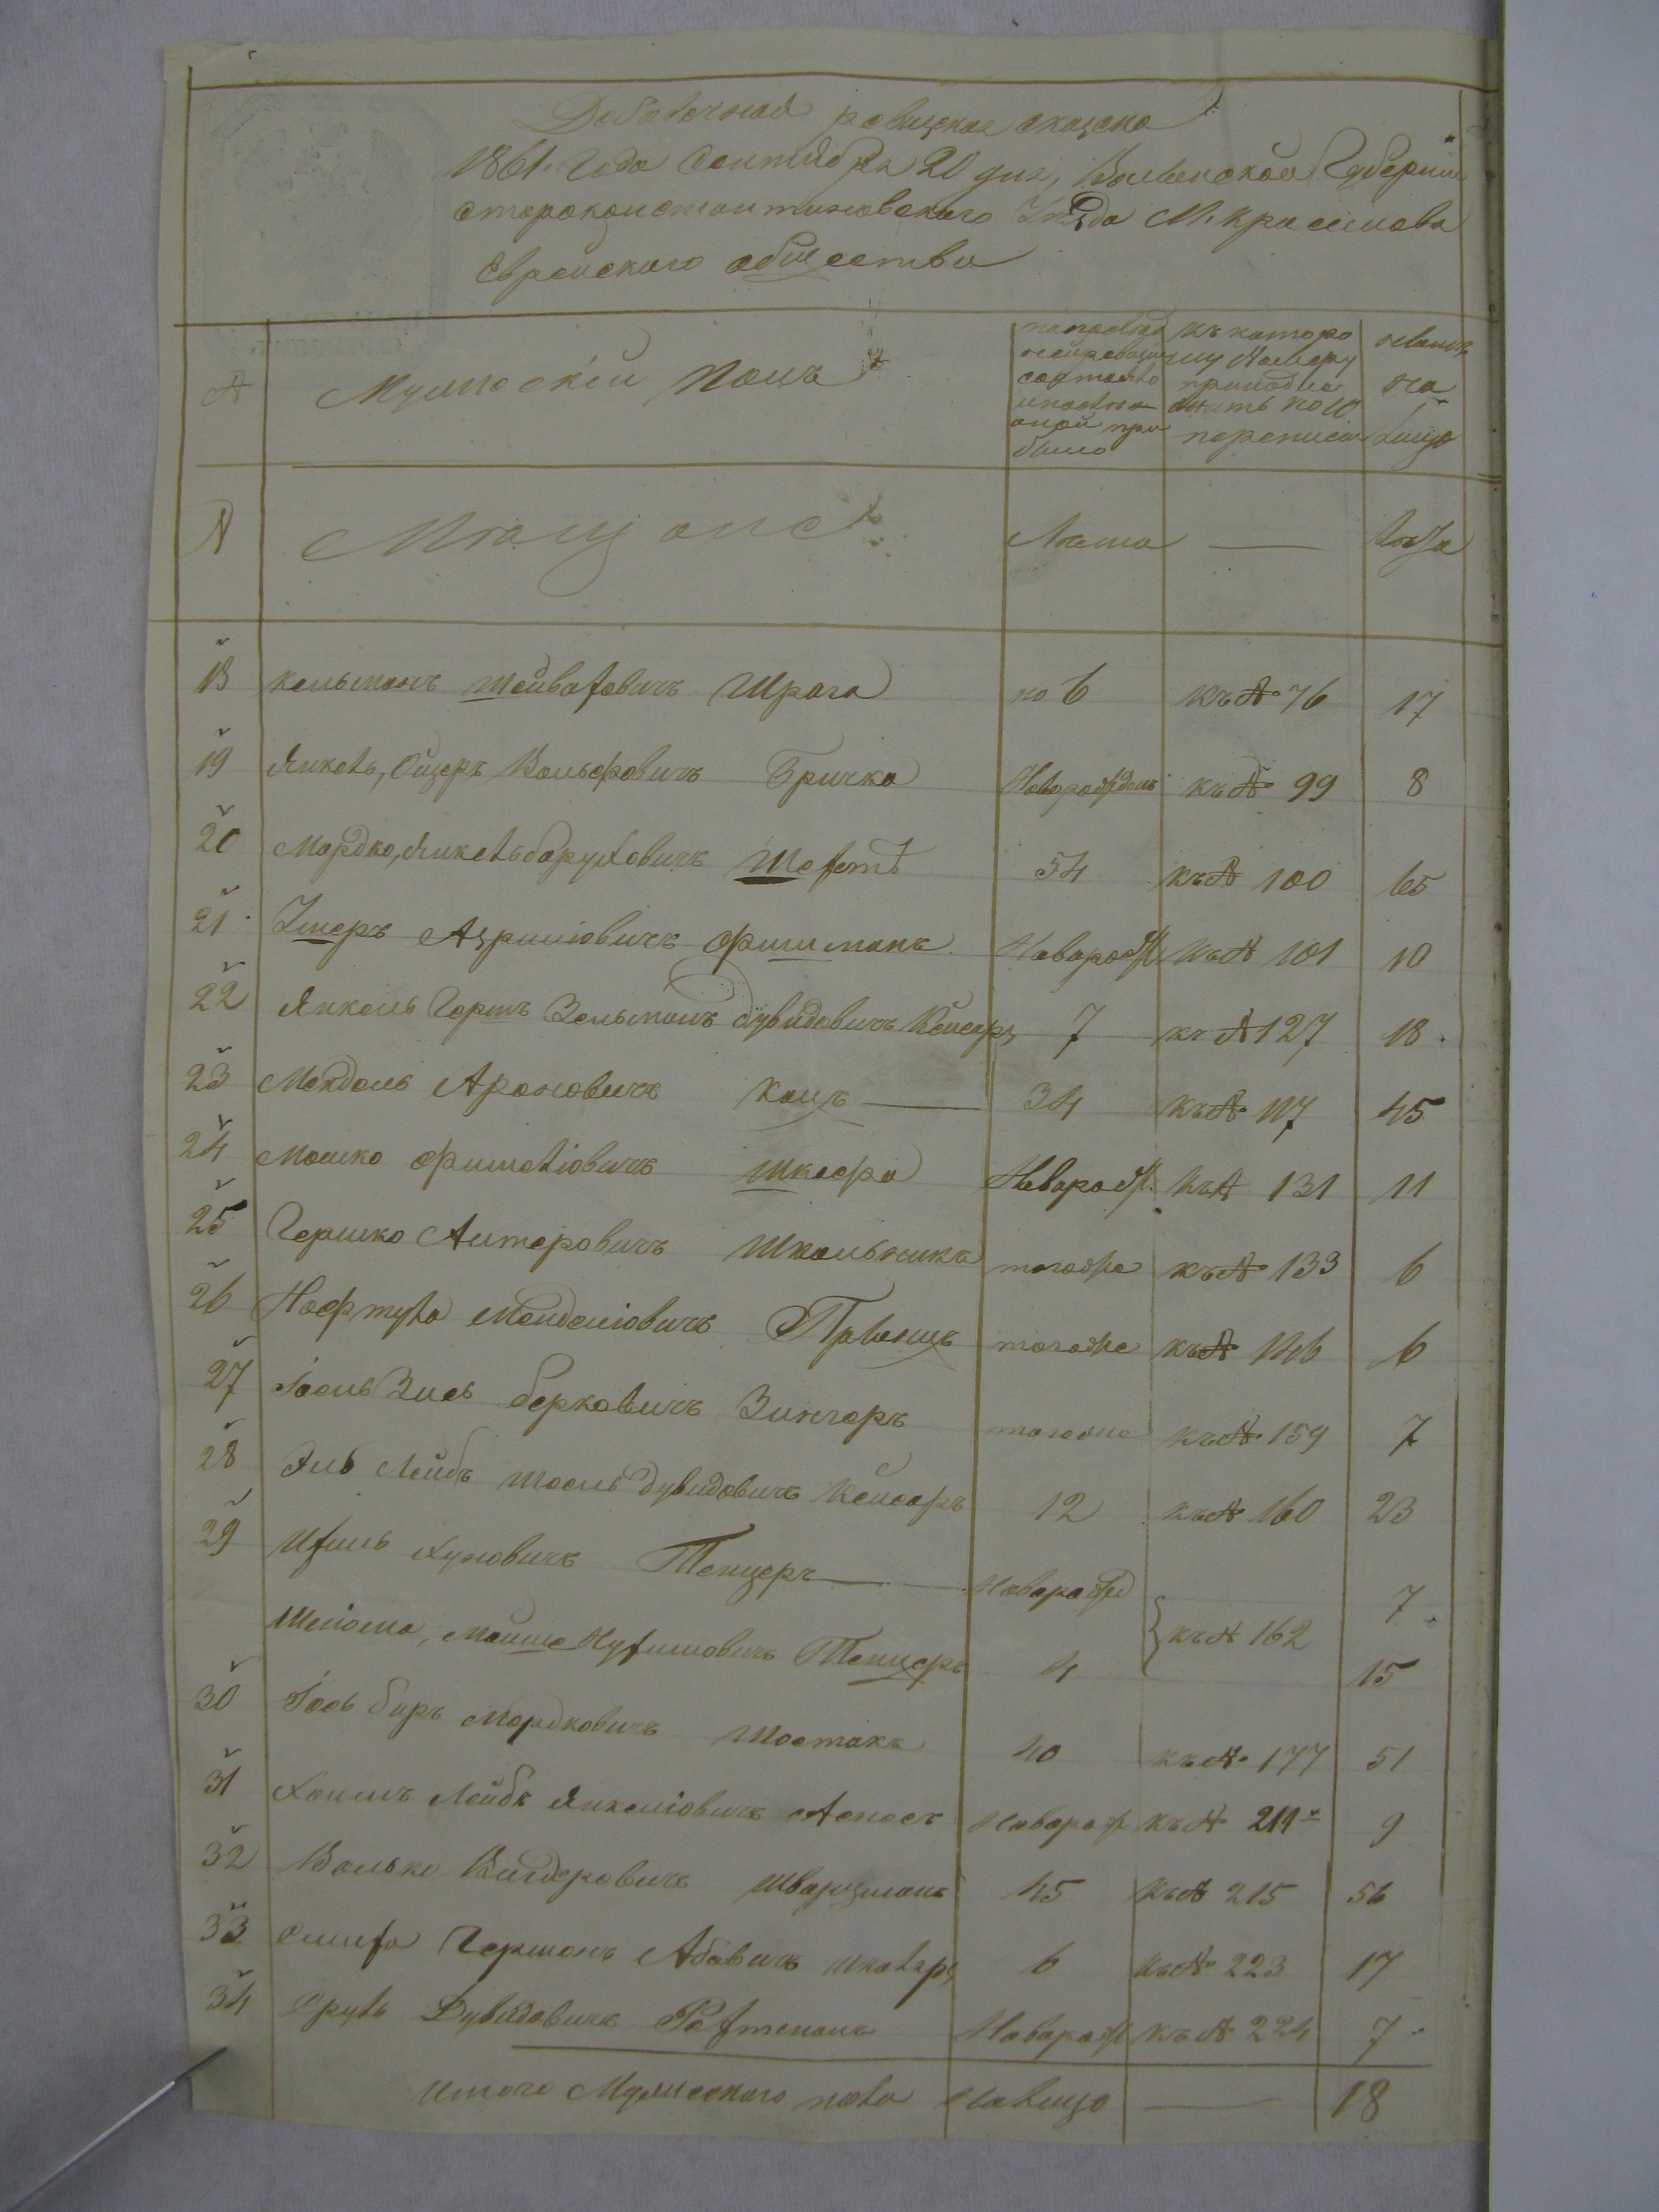 Добавочная ревизская сказка
1861. Года Сентября 20 дня, Волынской Губерніи
Староконстантиновского Уѣзда М. Красилова
Еврейского общества
№ Мужеский полъ
къ которо
му Номеру
принадле
жить по 10
переписи
на
лицо
№ Мѣщане Лета — Лѣта
18 Кельманъ Шрага по 6 къ № 76 17
19 Янкель, Ойзеръ Вольфовичъ Бричка Новорожденъ къ № 99 8
20 Мордко, Янкель Баруховичъ Шехетъ 54 къ № 100 65
21 Ушеръ Азриліовичъ Фишманъ Новорожд къ № 101 10
22 Янкель Гершъ Зельманъ Дувидовичъ Кейсаръ 7 къ № 127 18
23 Мендель Ароновичъ Кацъ — 34 къ № 117 45
24 Мошко Фишеліовичъ Шкафа Новорожд. къ № 131 11
25 Гершко Алтеровичъ Школьникъ тогоже къ № 133 6
26 Нафтула Менделіовичъ тогоже къ № 146 6
27 Іосль Зись Берковичъ Зингеръ тогоже къ № 159 7
28 Эль Лейбъ Шоель Дувидовичъ Кейсаръ 12 къ № 160 23
29 Ихиль Хуновичъ Тенцеръ — Новорожд 7
къ № 162
Шліома, Мойше Нухимовичъ Тенцеръ 4 15
30 Іось Беръ Мордковичъ Шостакъ 40 къ № 177 51
31 Хаимъ Лейбъ Янкеліовичъ Аспесъ Новорож къ № 211 9
32 Волько Вигдоровичъ Шварцманъ 45 къ № 215 56
33 Симха Гершонъ Абовичъ Шкляръ 6 къ № 223 17
34 Сруль Дувидовичъ Рохтманъ Новорож къ № 224 7
Итого Мужеского пола налицо — 18